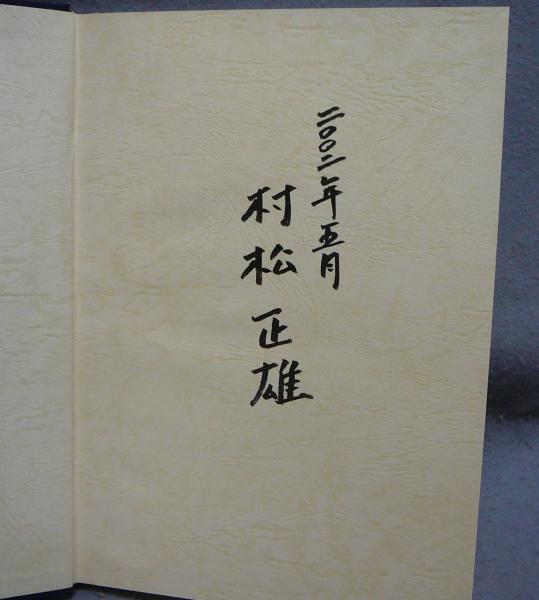 二〇〇二年五月
村松正雄